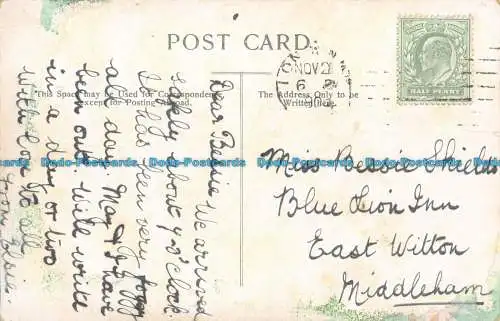 POST CARD.
This Space may be Used for Correspondence
except for Posting Abroad.
The Address Only to be
Written Here.
NOV 2
6
HALF PENNY
Miss Bessie Shields
Blue Lion Inn
East Witton
Middleham
Dear Bessie We arrived
safely about 9 o'clock.
It has been very foggy
all day. May & I have
been out. Will write
in a day or two
With love to all
from Elsie.
Dodo-Postcards Dodo-Postcards Dodo-Postcards Dodo-Postcards Dodo-Postcards